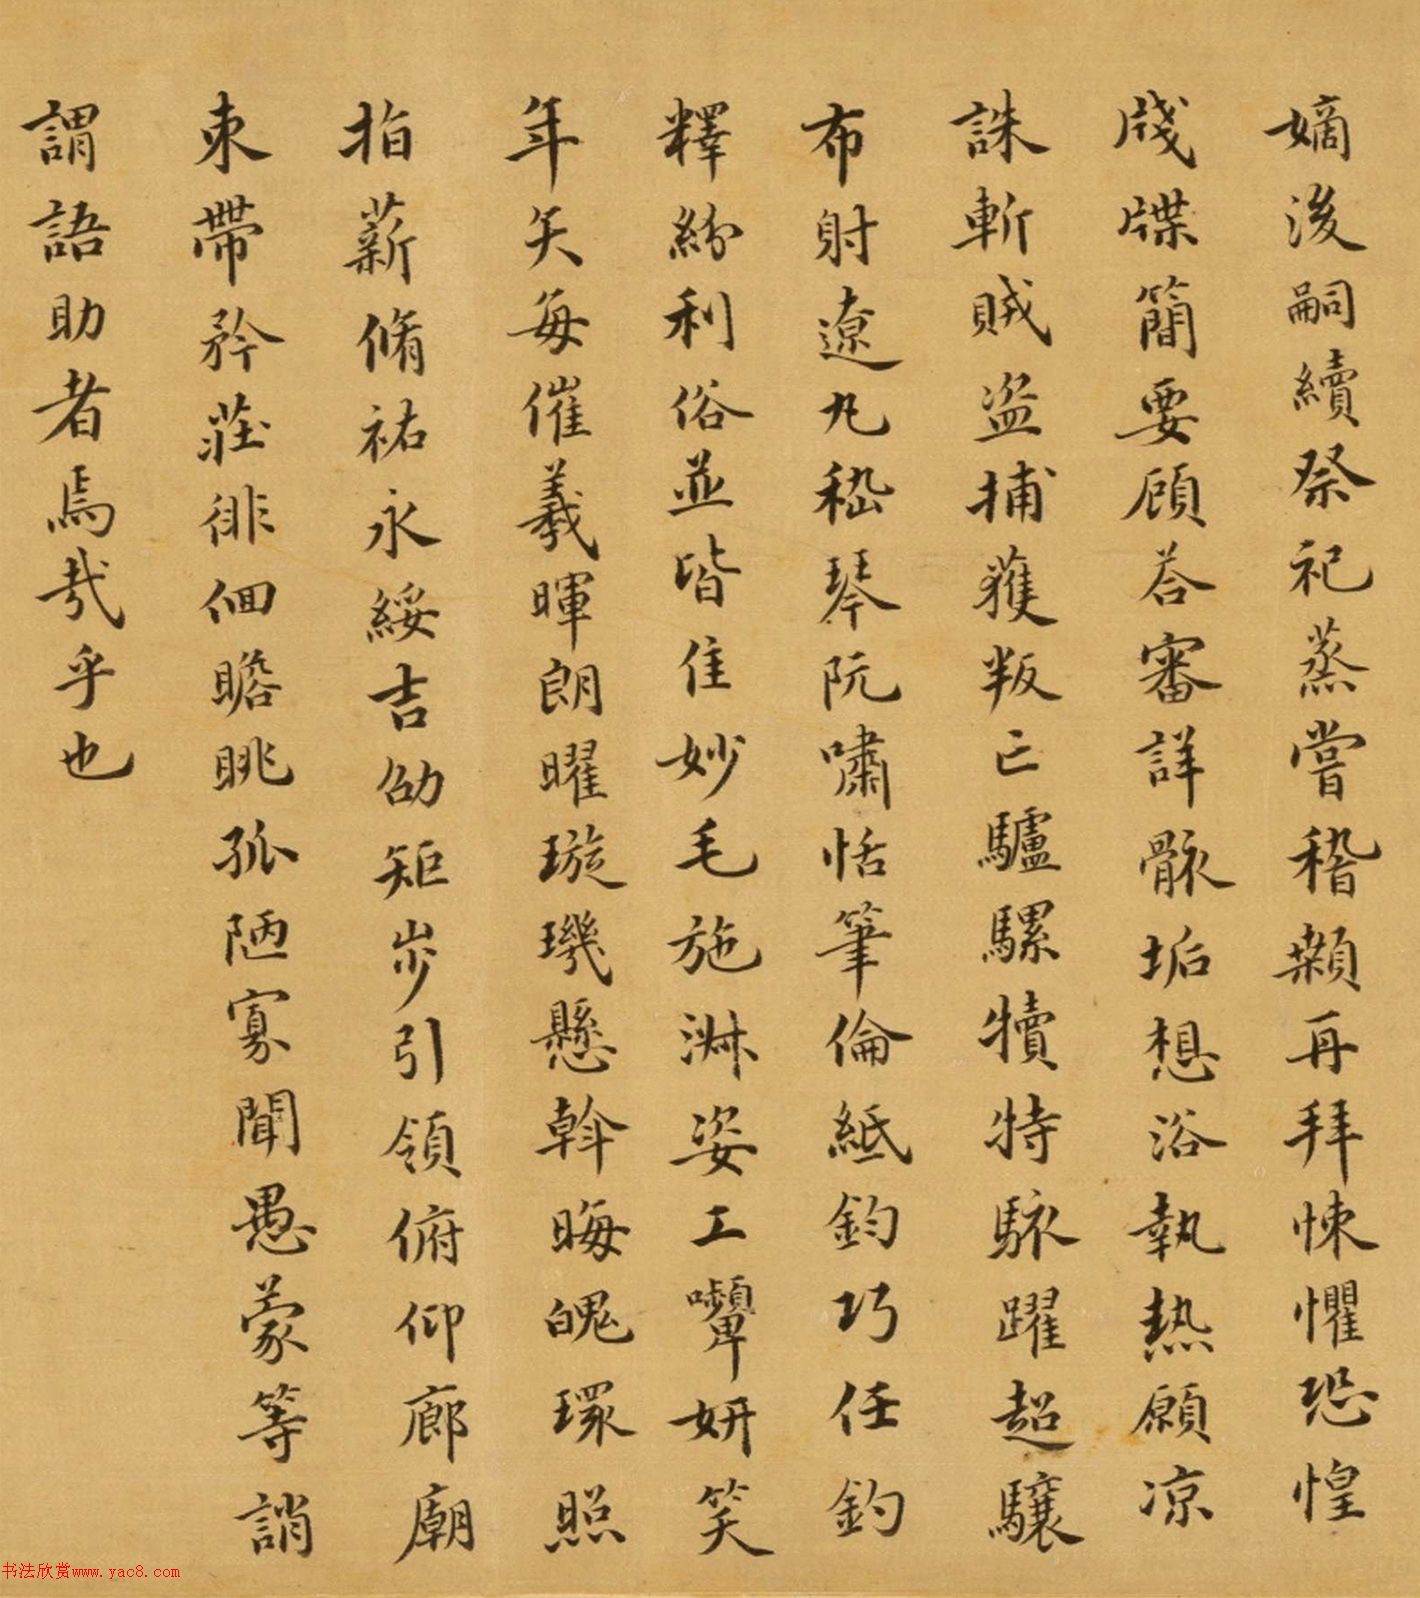 嫡後嗣續祭祀蒸嘗稽顙再拜悚懼恐惶
牋牒簡要顧荅審詳骸垢想浴執熱願凉
誅斬賊盗捕獲叛亡驢騾犢特駭躍超驤
布射遼丸嵇琴阮嘯恬筆倫紙鈞巧任釣
釋紛利俗並皆佳妙毛施淑姿工顰妍笑
年矢每催羲暉朗曜璇璣懸斡晦魄環照
指薪脩祐永綏吉劭矩步引領俯仰廊廟
束帶矜莊徘徊瞻眺孤陋寡聞愚蒙等誚
謂語助者焉哉乎也
书法欣赏www.yac8.com